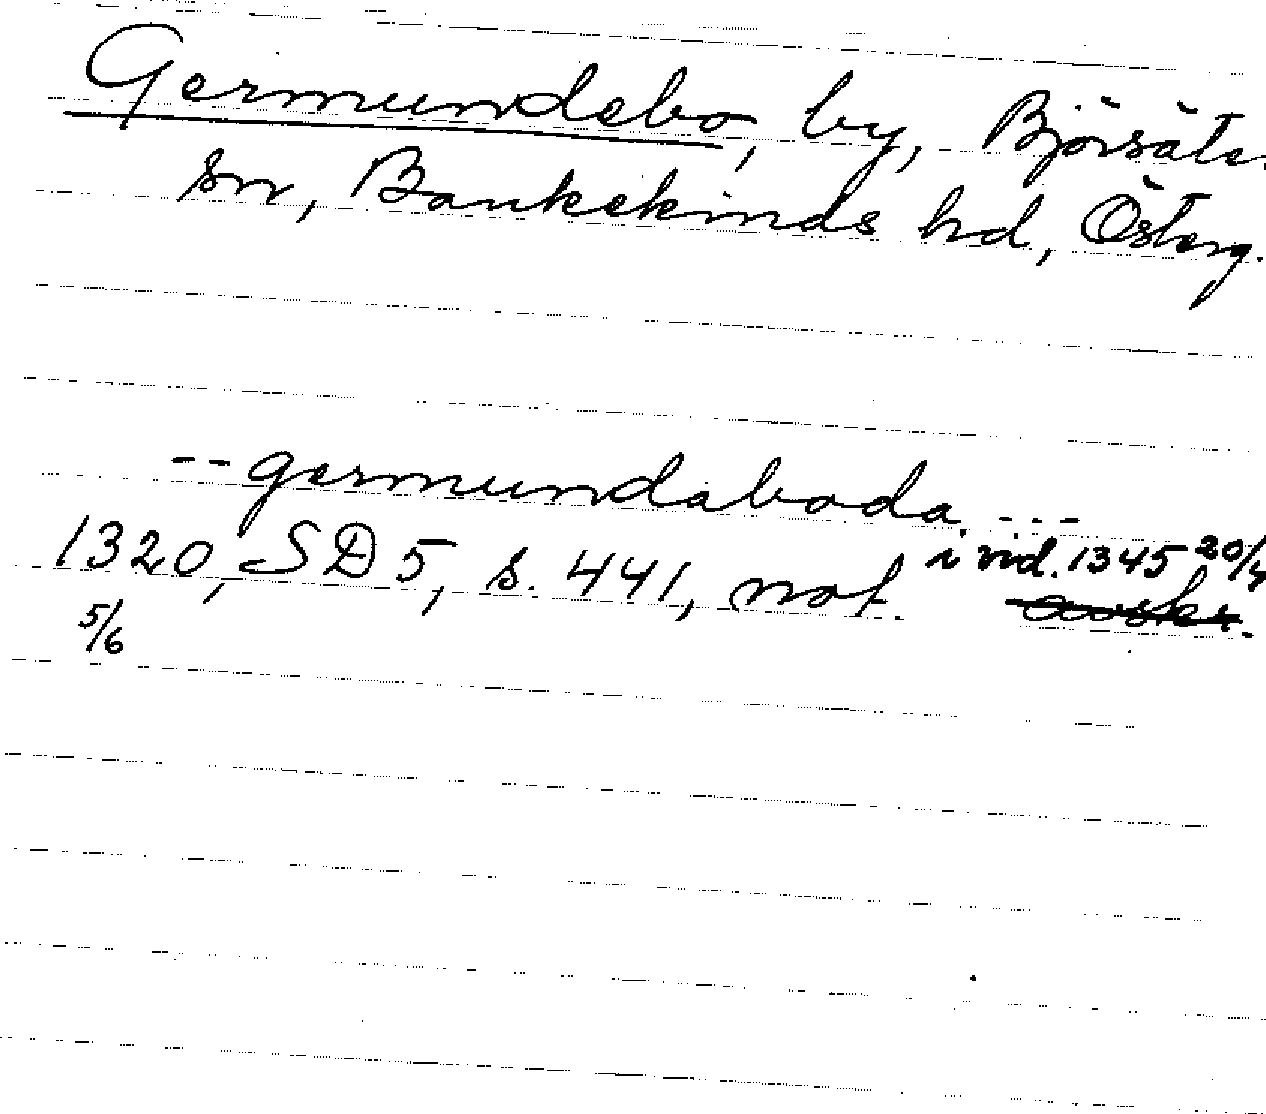 Germundebo, by, Björsäte.
sn, Bankekinds hd, Österg.
-- germundaboda ---
1320, SD 5, s. 441, not. i vid. 1345 20/4
5/6 avskr.